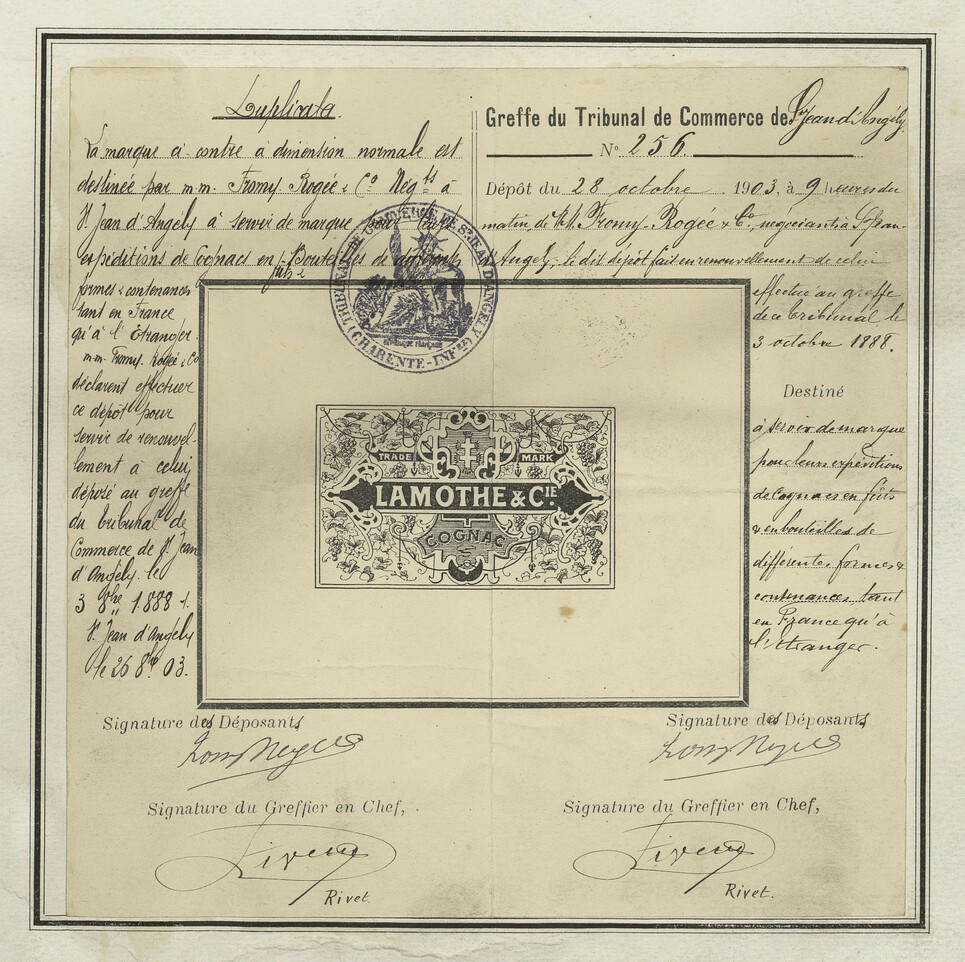 Duplicata.
La marque ci-contre à dimension normale est
destinée par m.m. Fromy, Rogée & Cº Négts à
St Jean d'Angely à servir de marque pour leurs
expéditions de Cognacs en fûts & Bouteilles de différentes
formes & contenances
tant en France
qu'à l'Étranger.
m.m. Fromy, Rogée & Cº
déclarent effectuer
ce dépôt pour
servir de renouvel-
lement à celui
déposé au greffe
du tribunal de
Commerce de St Jean
d'Angély le
3 8bre 1888.
St Jean d'Angély
le 26 8bre 03.
Greffe du Tribunal de Commerce de St Jean d'Angély
Nº 256
Dépôt du 28 octobre 1903, à 9 heures du
matin, de M.M. Fromy, Rogée & Cº, négociants à St Jean
d'Angely; le dit dépôt fait en renouvellement de celui
effectué au greffe
de ce tribunal le
3 octobre 1888.
Destiné
à servir de marque
pour leurs expéditions
de Cognacs en fûts
& en bouteilles de
différentes formes &
contenances tant
en France qu'à
l'étranger.
TRIBUNAL DE COMMERCE DE ST JEAN D'ANGELY
(CHARENTE-INFRE)
RÉPUBLIQUE FRANÇAISE
TRADE MARK
LAMOTHE & CIE.
COGNAC
Signature des Déposants
Fromy Rogée & Cº
Signature des Déposants
Fromy Rogée & Cº
Signature du Greffier en Chef,
Rivet
Signature du Greffier en Chef,
Rivet.